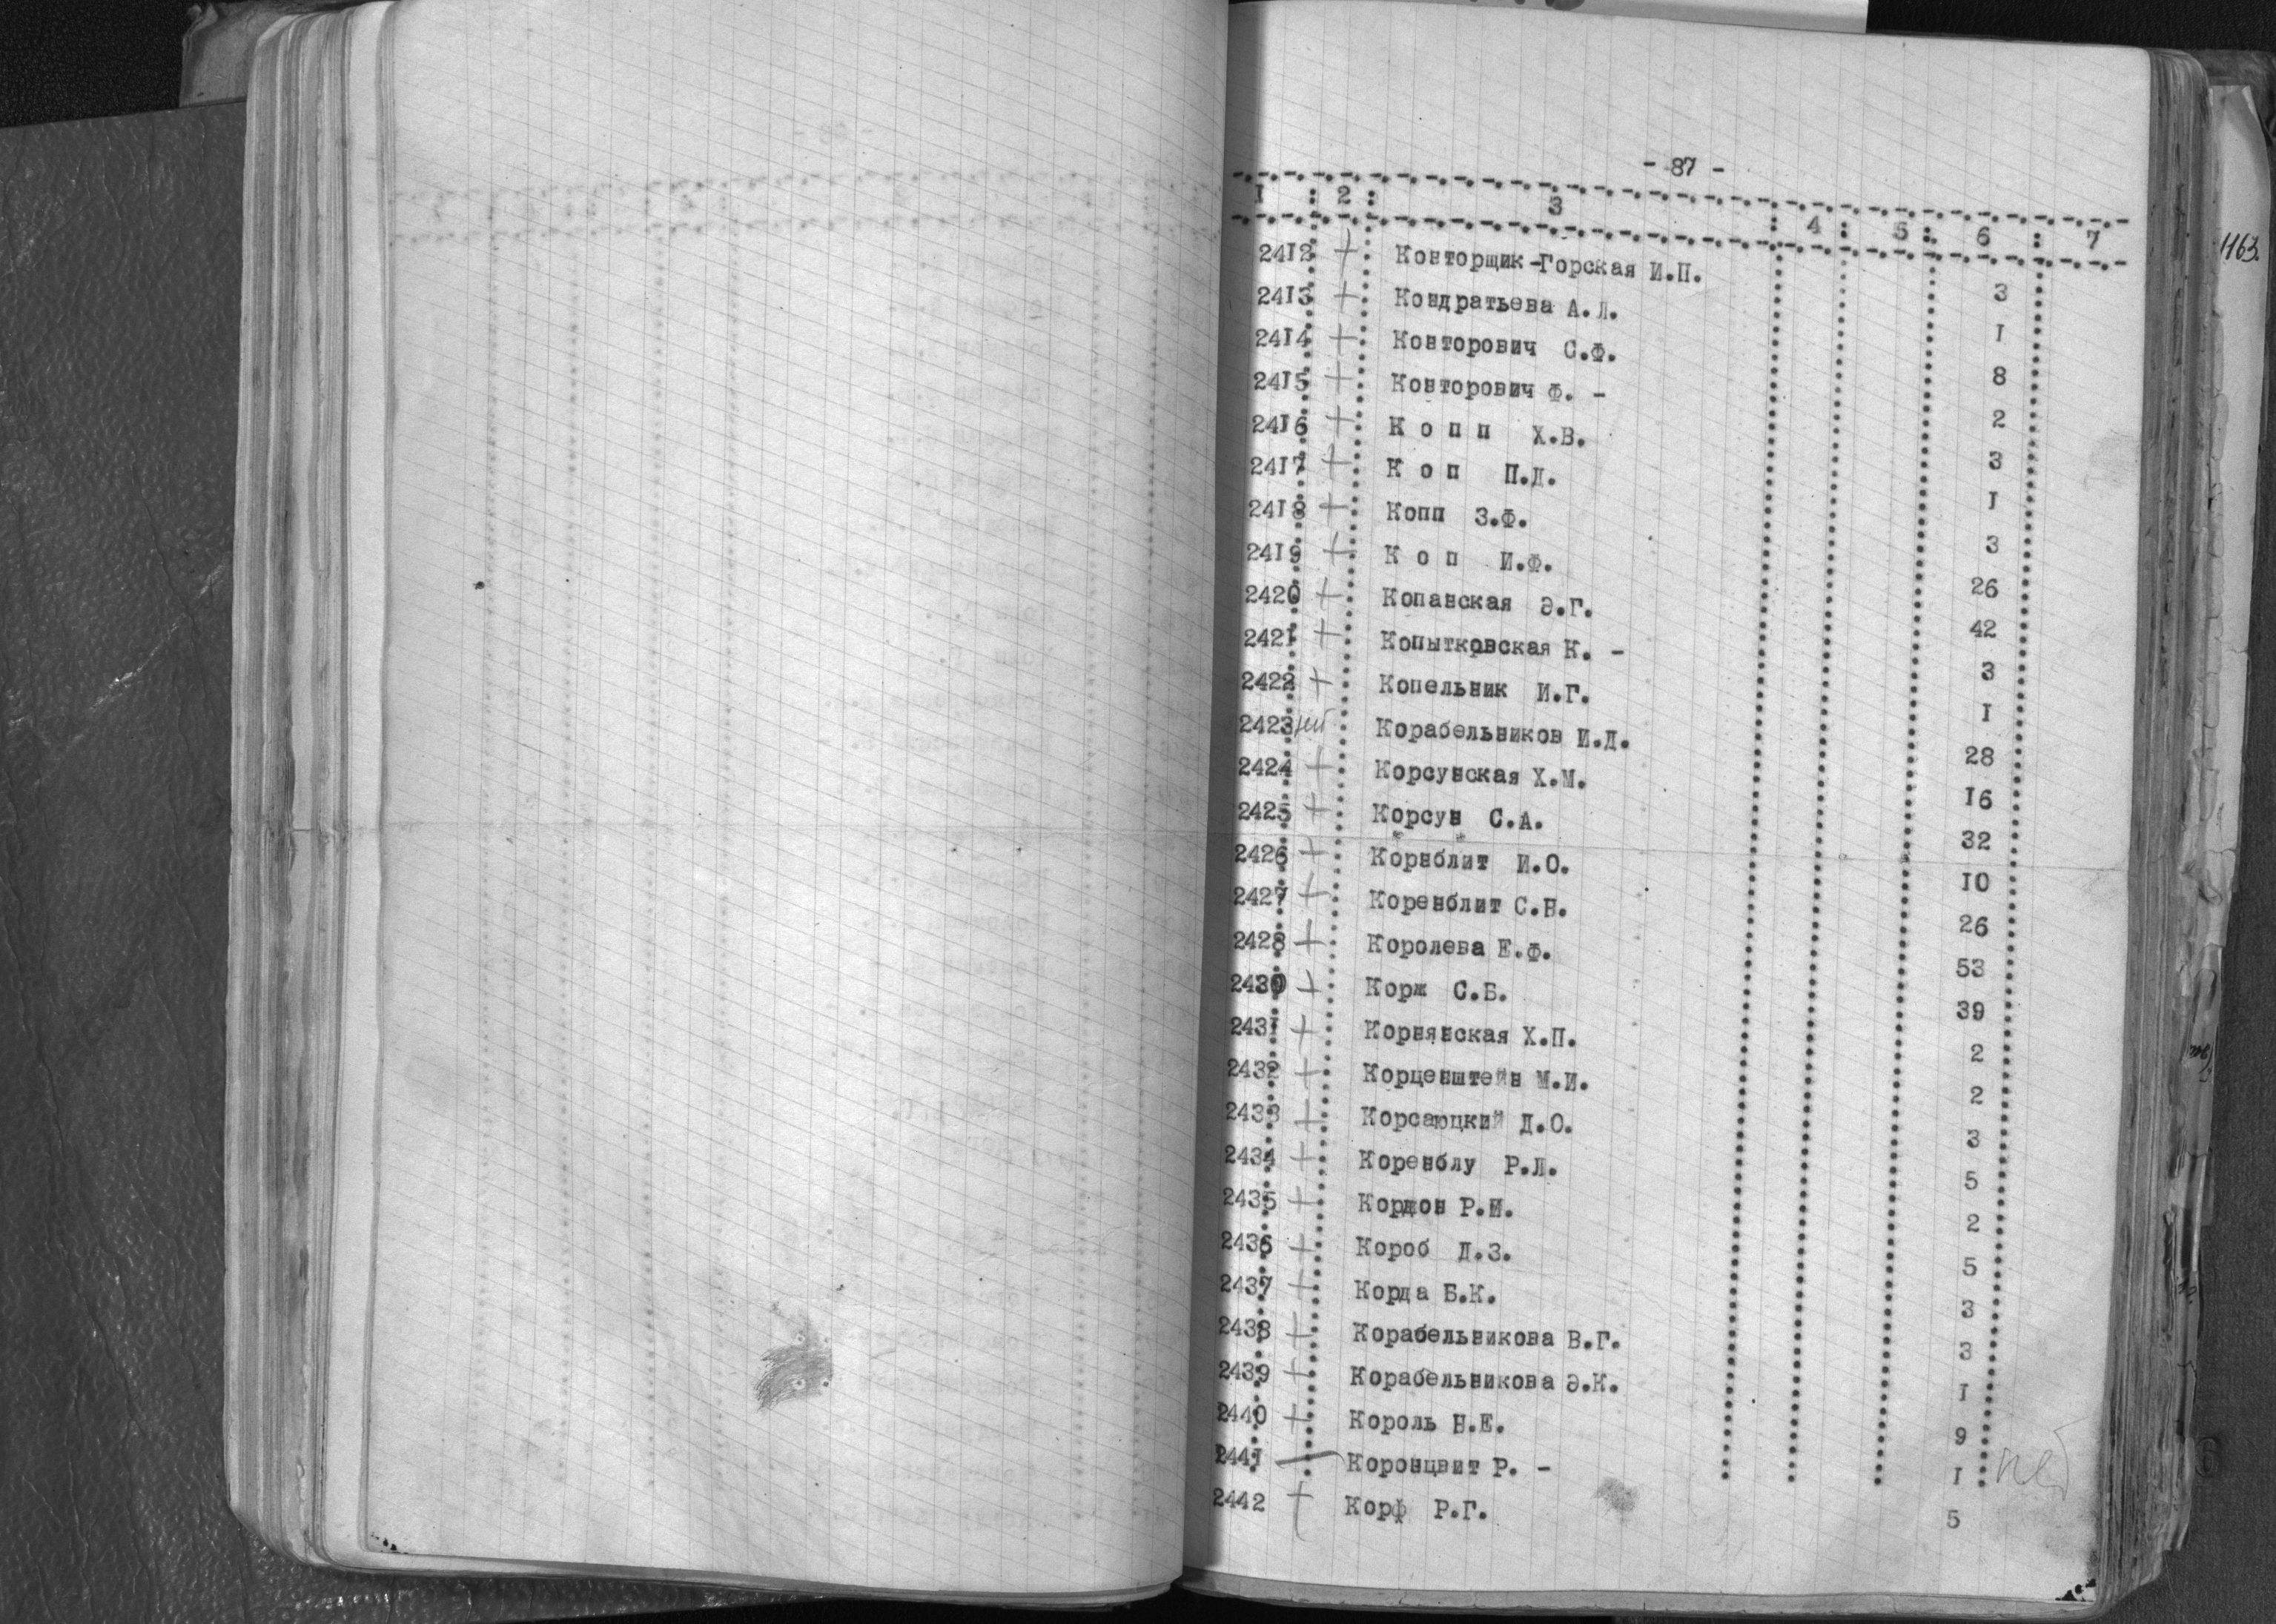 - 87 -
I : 2 : 3 : 4 : 5 : 6 : 7
1163.
2412 + Конторщик-Горская И.П. 3
2413 + Кондратьева А.Л. I
2414 + Конторович С.Ф. 8
2415 + Конторович Ф. - 2
2416 + К о п п Х.В. 3
2417 + К о п П.Д. I
2418 + Копп З.Ф. 3
2419 + К о п И.Ф. 26
2420 + Копанская Э.Г. 42
2421 + Копытковская К. - 3
2422 + Копельник И.Г. I
2423 нет Корабельников И.Д. 28
2424 + Корсунская Х.М. I6
2425 + Корсун С.А. 32
2426 + Корнблит И.О. I0
2427 + Коренблит С.Н. 26
2428 + Королева Е.Ф. 53
2430 + Корж С.Б. 39
2431 + Корнянская Х.П. 2
2432 + Корценштейн М.И. 2
2433 + Корсаюцкий Д.О. 3
2434 + Коренблу Р.Л. 5
2435 + Кордон Р.И. 2
2436 + Короб Д.З. 5
2437 + Корда Б.К. 3
2438 + Корабельникова В.Г. 3
2439 + Корабельникова Э.К. I
2440 + Король Н.Е. 9
2441 — Коронцвит Р. - I нет
2442 + Корф Р.Г. 5